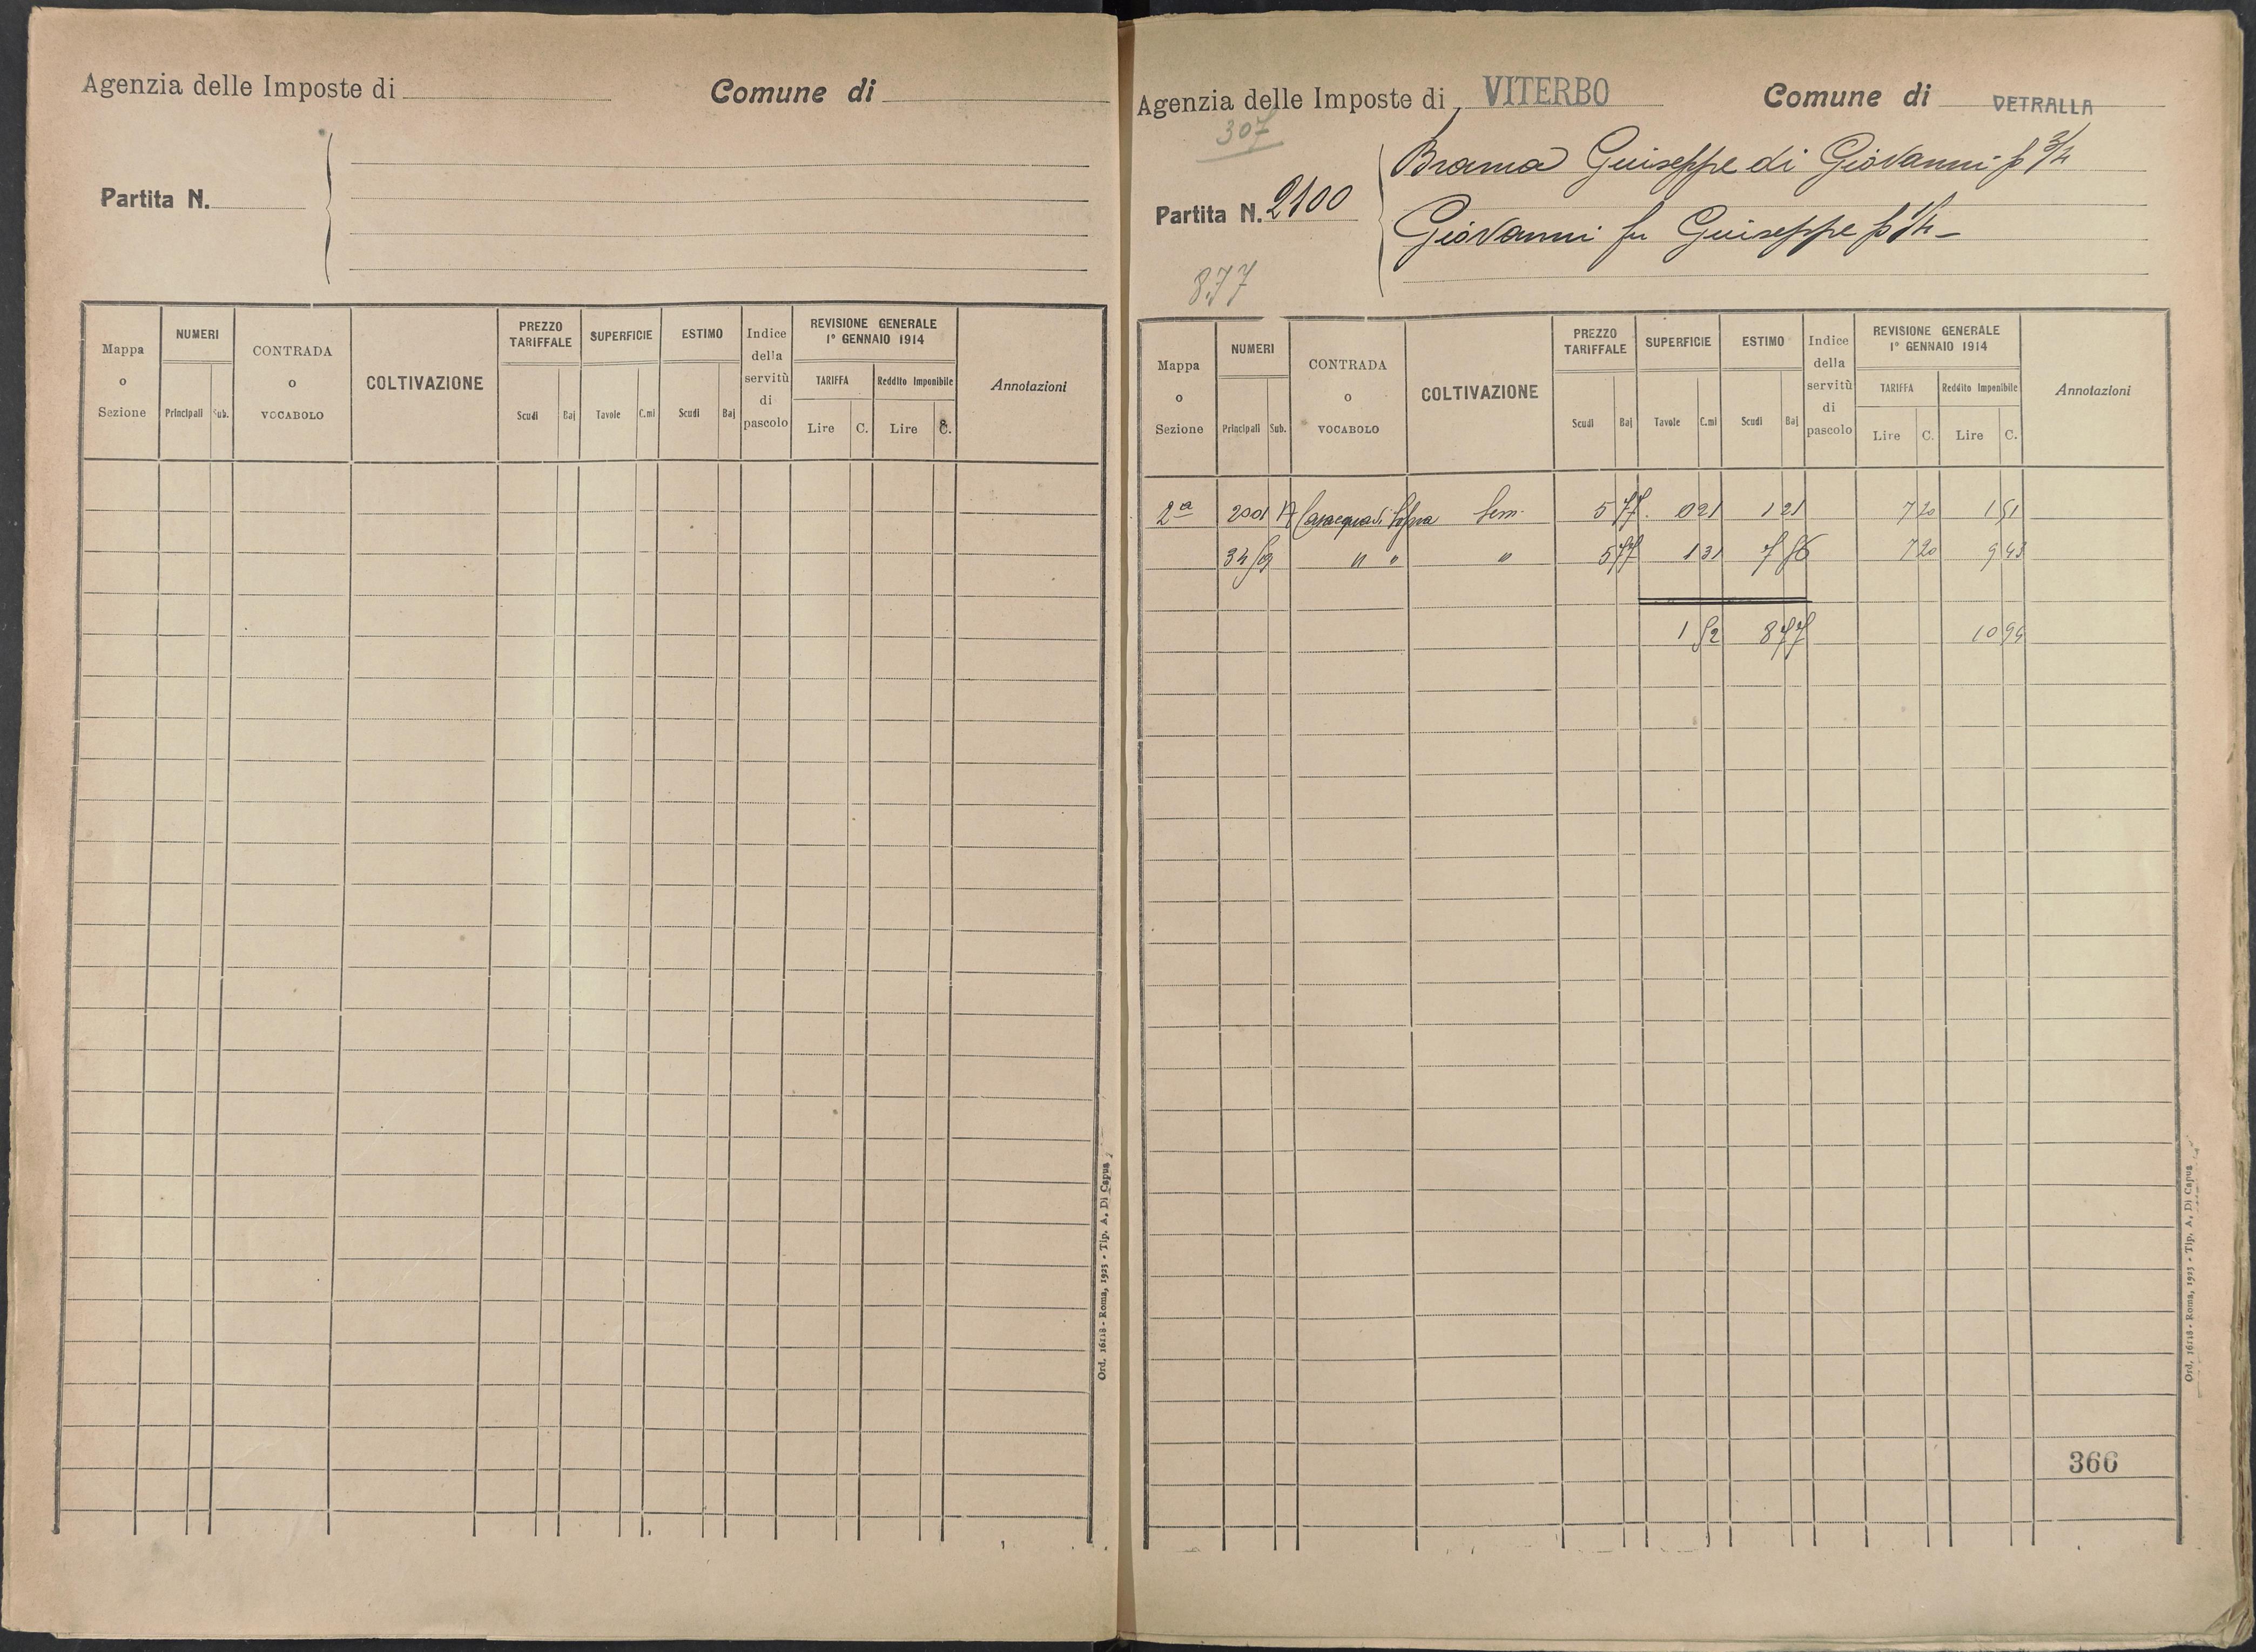 Agenzia delle Imposte di
Comune di
Partita N.
Mappa o Sezione
NUMERI
Principali
Sub.
CONTRADA o VOCABOLO
COLTIVAZIONE
PREZZO TARIFFALE
Scudi
Baj
SUPERFICIE
Tavole
C.mi
ESTIMO
Scudi
Baj
Indice della servitù di pascolo
REVISIONE GENERALE 1° GENNAIO 1914
TARIFFA
Lire
C.
Reddito Imponibile
Lire
C.
Annotazioni
Ord. 16118 - Roma, 1923 - Tip. A. Di Capua
Agenzia delle Imposte di VITERBO
Comune di VETRALLA
307
Partita N. 2100
Brama Giuseppe di Giovanni p 3/4
Giovanni fu Giuseppe p 1/4 -
8.77
Mappa o Sezione
NUMERI
Principali
Sub.
CONTRADA o VOCABOLO
COLTIVAZIONE
PREZZO TARIFFALE
Scudi
Baj
SUPERFICIE
Tavole
C.mi
ESTIMO
Scudi
Baj
Indice della servitù di pascolo
REVISIONE GENERALE 1° GENNAIO 1914
TARIFFA
Lire
C.
Reddito Imponibile
Lire
C.
Annotazioni
2a 2001 Sem. 5 77 0 21 1 21 7 20 1 51
" " " 5 77 1 31 7 56 7 20 9 43
1 52 8 77 10 94
366
Ord. 16118 - Roma, 1923 - Tip. A. Di Capua